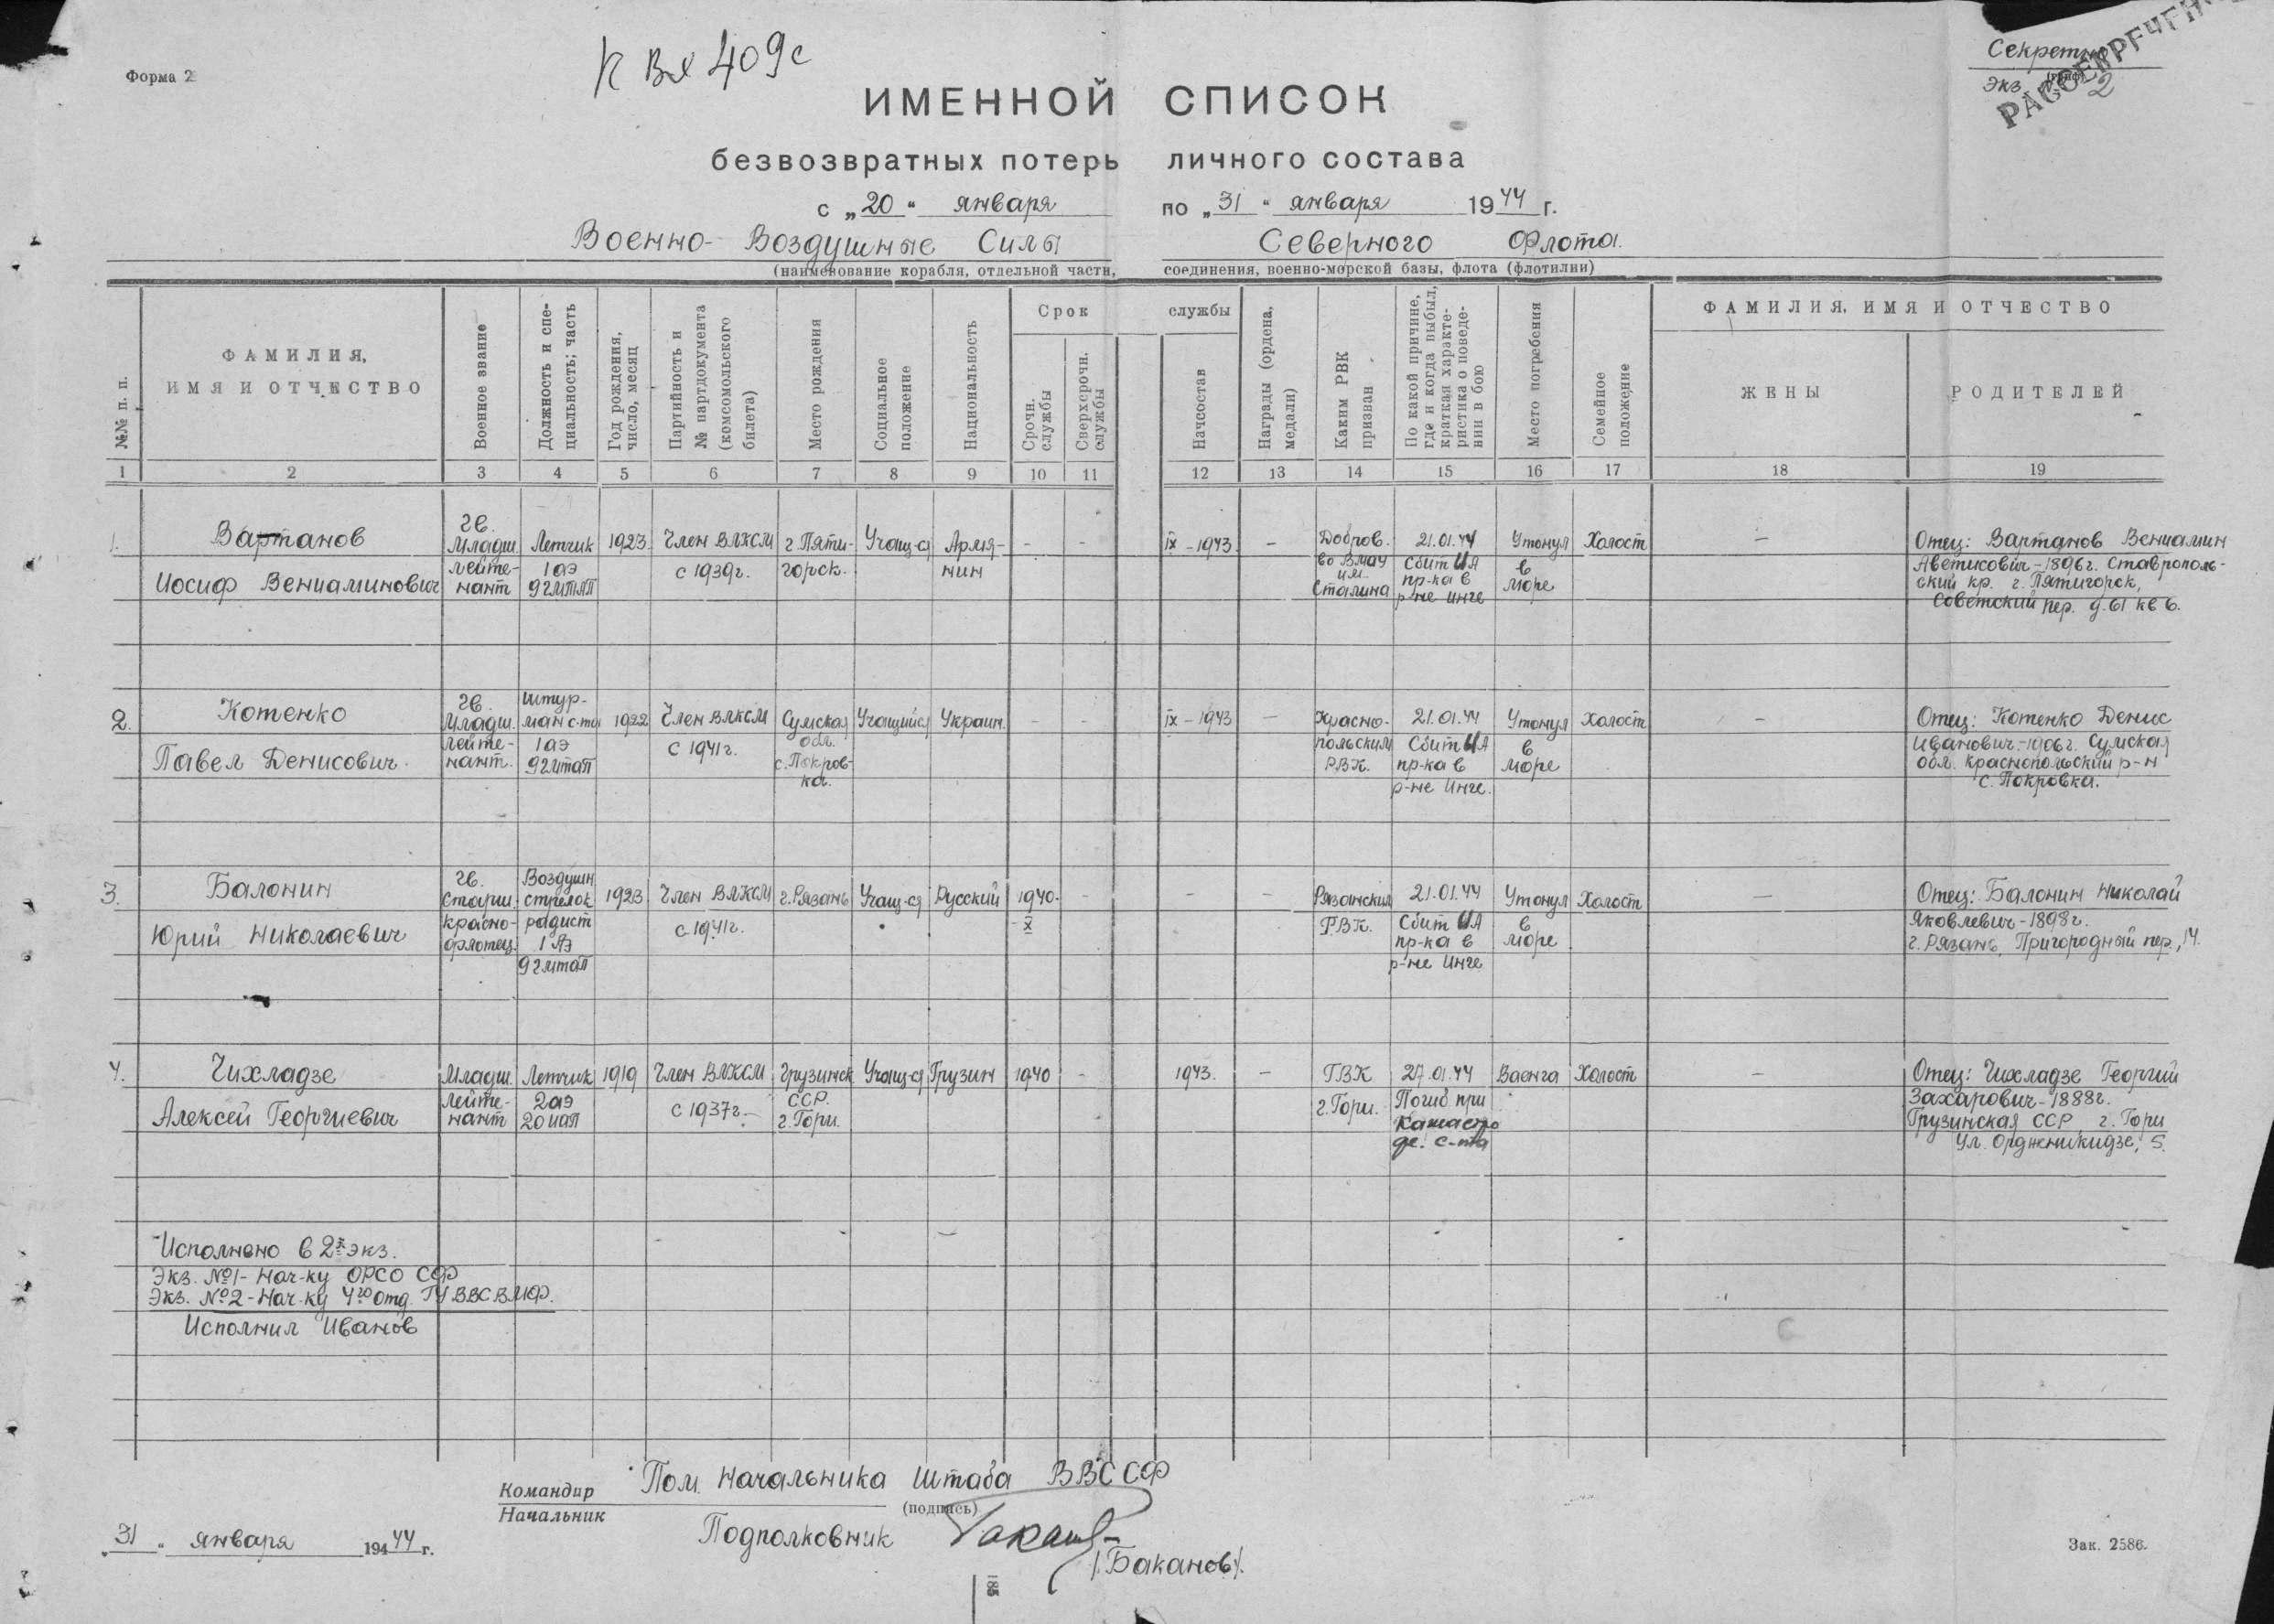 Форма 2
К Вх 409с
Секретно
(гриф)
Экз. № 2
РАССЕКРЕЧЕНО
ИМЕННОЙ СПИСОК
безвозвратных потерь личного состава
с „20“ января по „31“ января 1944 г.
Военно-Воздушные Силы Северного Флота.
(наименование корабля, отдельной части, соединения, военно-морской базы, флота (флотилии)
№№ п. п.
ФАМИЛИЯ,
ИМЯ И ОТЧЕСТВО
Военное звание
Должность и спе-
циальность; часть
Год рождения,
число, месяц
Партийность и
№ партдокумента
(комсомольского
билета)
Место рождения
Социальное
положение
Национальность
Срок службы
Срочн.
службы
Сверхсрочн.
службы
Начсостав
Награды (ордена,
медали)
Каким РВК
призван
По какой причине,
где и когда выбыл,
краткая характе-
ристика о поведе-
нии в бою
Место погребения
Семейное
положение
ФАМИЛИЯ, ИМЯ И ОТЧЕСТВО
ЖЕНЫ
РОДИТЕЛЕЙ
1 2 3 4 5 6 7 8 9 10 11 12 13 14 15 16 17 18 19
1.
Вартанов
Иосиф Вениаминович
гв.
Младш.
лейте-
нант
Летчик
1 аэ
9 гмтап
1923
Член ВЛКСМ
с 1939г.
г. Пяти-
горск.
Учащ-ся
Армя-
нин
-
-
IX - 1943
-
Добров.
во ВМАУ
им.
Сталина
21.01.44
Сбит ИА
пр-ка в
р-не Инге
Утонул
в
море
Холост
-
Отец: Вартанов Вениамин
Аветисович - 1896г. Ставрополь-
ский кр. г. Пятигорск,
Советский пер. д. 61 кв 6.
2.
Котенко
Павел Денисович.
гв.
Младш.
лейте-
нант.
Штур-
ман с-та
1 аэ
9 гмтап
1922
Член ВЛКСМ
с 1941г.
Сумская
обл.
с. Покров-
ка.
Учащийся
Украин.
-
-
IX - 1943
-
Красно-
польским
РВК.
21.01.44
Сбит ИА
пр-ка в
р-не Инге.
Утонул
в
море
Холост
-
Отец: Котенко Денис
Иванович - 1906г. Сумская
обл. Краснопольский р-н
с. Покровка.
3.
Балонин
Юрий Николаевич
гв.
Старш.
красно-
флотец.
Воздушн
стрелок
радист
1 Аэ
9 гмтап
1923
Член ВЛКСМ
с 1941г.
г. Рязань
Учащ-ся
Русский
1940-
X
-
-
-
Рязанским
РВК.
21.01.44
Сбит ИА
пр-ка в
р-не Инге
Утонул
в
море
Холост
-
Отец: Балонин Николай
Яковлевич - 1898г.
г. Рязань, Пригородный пер., 14.
4.
Чихладзе
Алексей Георгиевич
Младш.
лейте-
нант
Летчик
2 аэ
20 иап
1919
Член ВЛКСМ
с 1937г.
Грузинск
ССР.
г. Гори.
Учащ-ся
Грузин
1940
-
1943.
-
ГВК
г. Гори.
27.01.44
Погиб при
катастро
фе. с-та
Ваенга
Холост
-
Отец: Чихладзе Георгий
Захарович - 1888г.
Грузинская ССР, г. Гори
ул. Орджоникидзе, 5.
Исполнено в 2х экз.
Экз. №1 - Нач-ку ОРСО СФ
Экз. №2 - Нач-ку 4го отд. ГУ ВВС ВМФ.
Исполнил Иванов
Командир
Начальник
Пом. Начальника Штаба ВВС СФ
(подпись)
Подполковник
/Баканов/.
„31“ января 1944 г.
Зак. 2586.